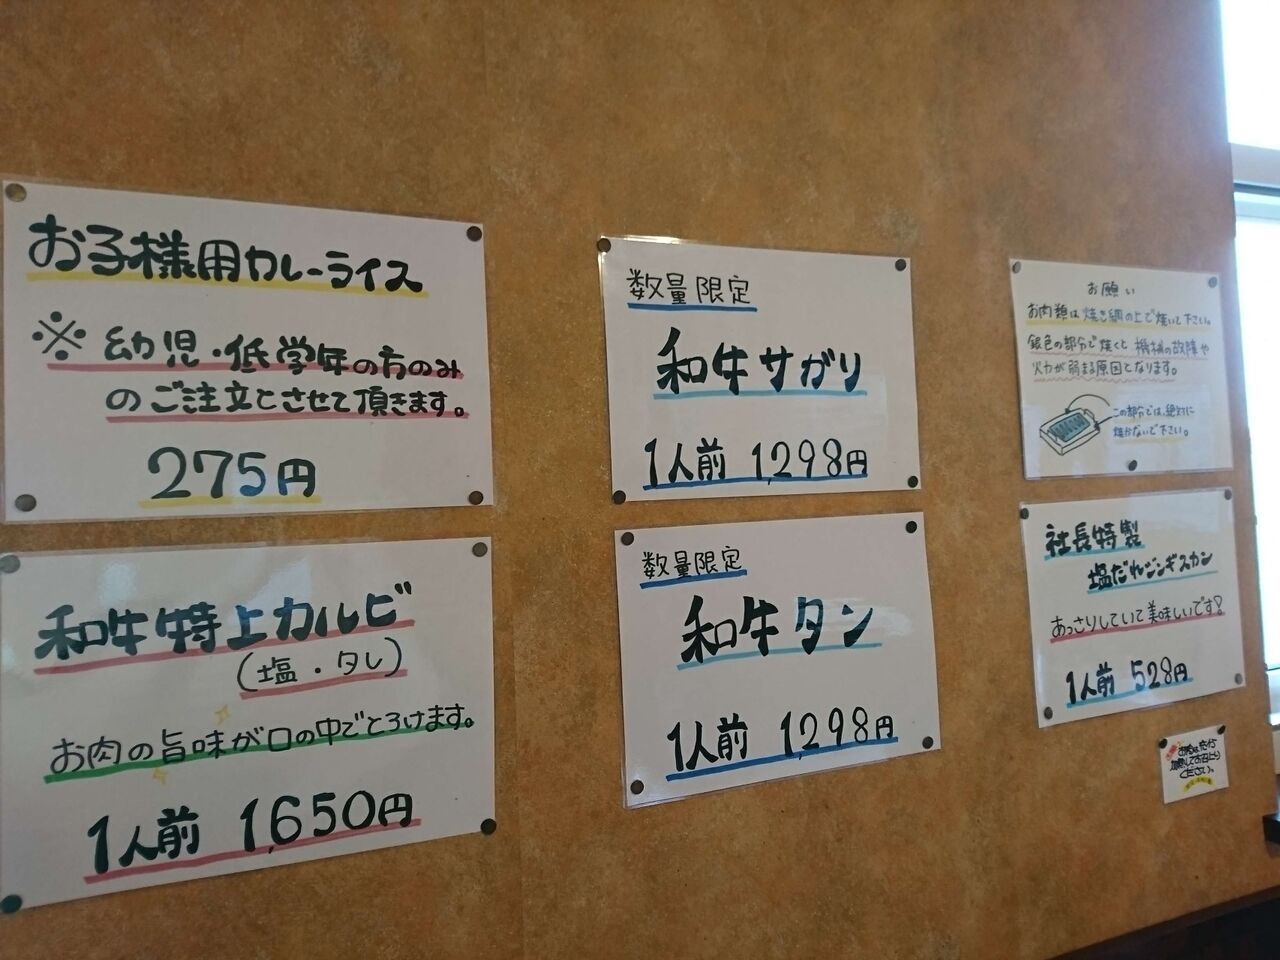 お子様用カレーライス
※幼児・低学年の方のみ
のご注文とさせて頂きます。
275円
和牛特上カルビ
(塩・タレ)
お肉の旨味が口の中でとろけます。
1人前 1,650円
数量限定
和牛サガリ
1人前 1,298円
数量限定
和牛タン
1人前 1,298円
お願い
お肉類は焼き網の上で焼いて下さい。
銀色の部分で焼くと機械の故障や
火力が弱まる原因となります。
この部分では、絶対に
焼かないで下さい。
社長特製
塩だれジンギスカン
あっさりしていて美味しいです!
1人前 528円
お肉は充分
加熱してお召上り
ください。